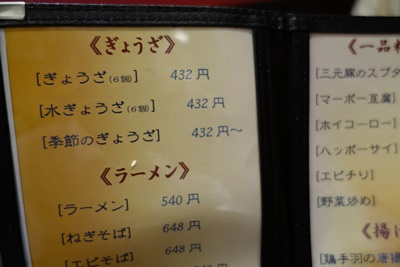 《ぎょうざ》
[ぎょうざ(6個)] 432円
[水ぎょうざ(6個)] 432円
[季節のぎょうざ] 432円~
《ラーメン》
[ラーメン] 540円
[ねぎそば] 648円
[エビそば] 648円
《一品料
[三元豚のスブタ
[マーボー豆腐]
[ホイコーロー]
[ハッポーサイ]
[エビチリ]
[野菜炒め]
《揚げ
[鶏手羽の唐揚